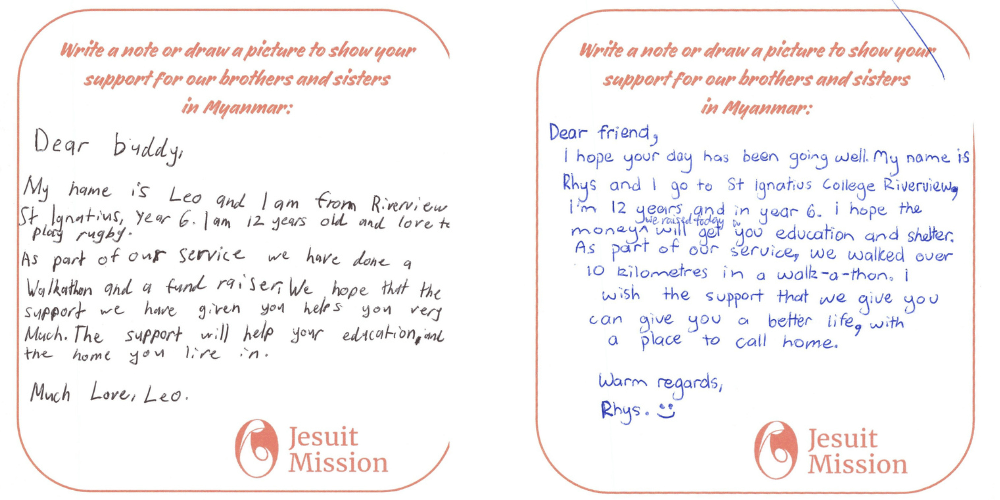 Write a note or draw a picture to show your
support for our brothers and sisters
in Myanmar:
Dear buddy,
My name is Leo and I am from Riverview
St Ignatius, Year 6. I am 12 years old and love to
play rugby.
As part of our service we have done a
Walkathon and a fund raiser. We hope that the
support we have given you helps you very
Much. The support will help your education, and
the home you live in.
Much Love, Leo.
Jesuit
Mission
Write a note or draw a picture to show your
support for our brothers and sisters
in Myanmar:
Dear friend,
I hope your day has been going well. My name is
Rhys and I go to St Ignatius College Riverview,
I'm 12 years and in year 6. I hope the
we raised today
money ^ will get you education and shelter.
As part of our service, we walked over
10 kilometres in a walk-a-thon. I
wish the support that we give you
can give you a better life, with
a place to call home.
Warm regards,
Rhys.
Jesuit
Mission